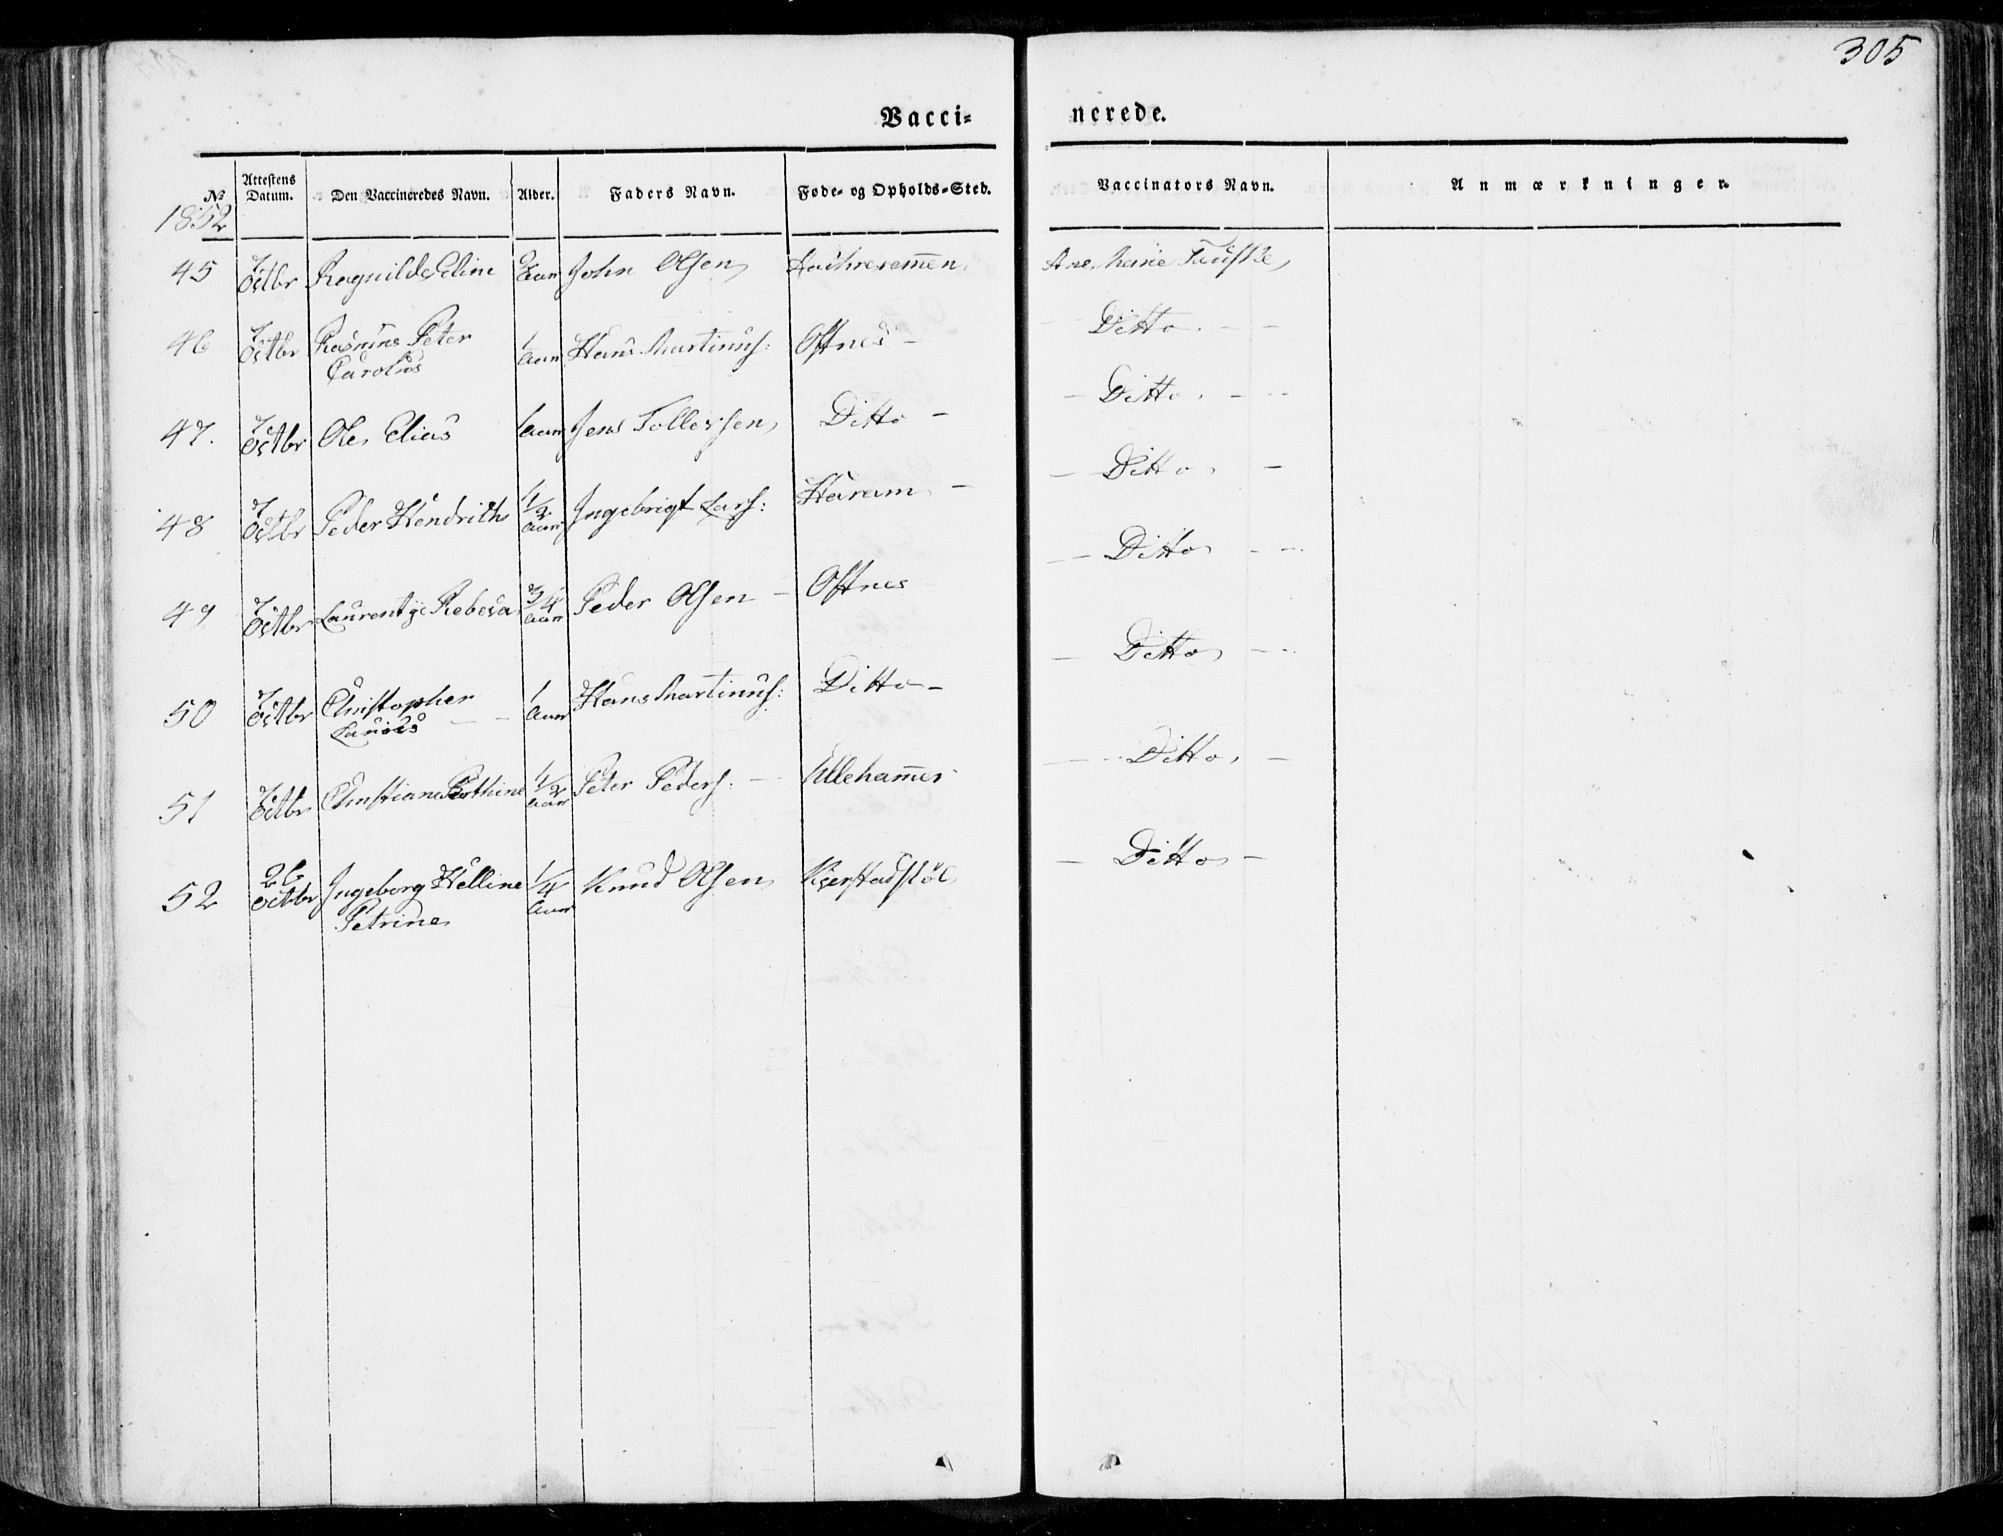 305
Vacci= nerede.
№ Attestens Datum. Den Vaccineredes Navn. Alder. Faders Navn. Føde- og Opholds-Sted. Vaccinators Navn. Anmærkninger.
1852
45 7 Octbr Ragnilde Eline 2 Aar John Olsen Ane Marie
46 7 Octbr Rasmus Peter 1 Aar Hans Martinus: Oftnes - Ditto. - -
Carolus
47. 7 Octbr Ole Elias 1 Aar Jens Tollessen Ditto - - Ditto. - -
48 7 Octbr Peder Hendrik 1/2 Aar Ingebrigt Lars: Haram - - Ditto -
49 7 Octbr Laurentze Rebeca 3/4 Aar Peder Olsen - Oftnes - Ditto - -
50 7 Octbr Christopher 1 Aar Hans Martinus: Ditto - - Ditto - -
51 7 Octbr Christiane 1/2 Aar Peter Peders. - Ullehammer - Ditto. -
52 26 Octbr Ingeborg Elline 1/4 Aar Knud Olsen Kjerstadstøl - Ditto -
Petrine